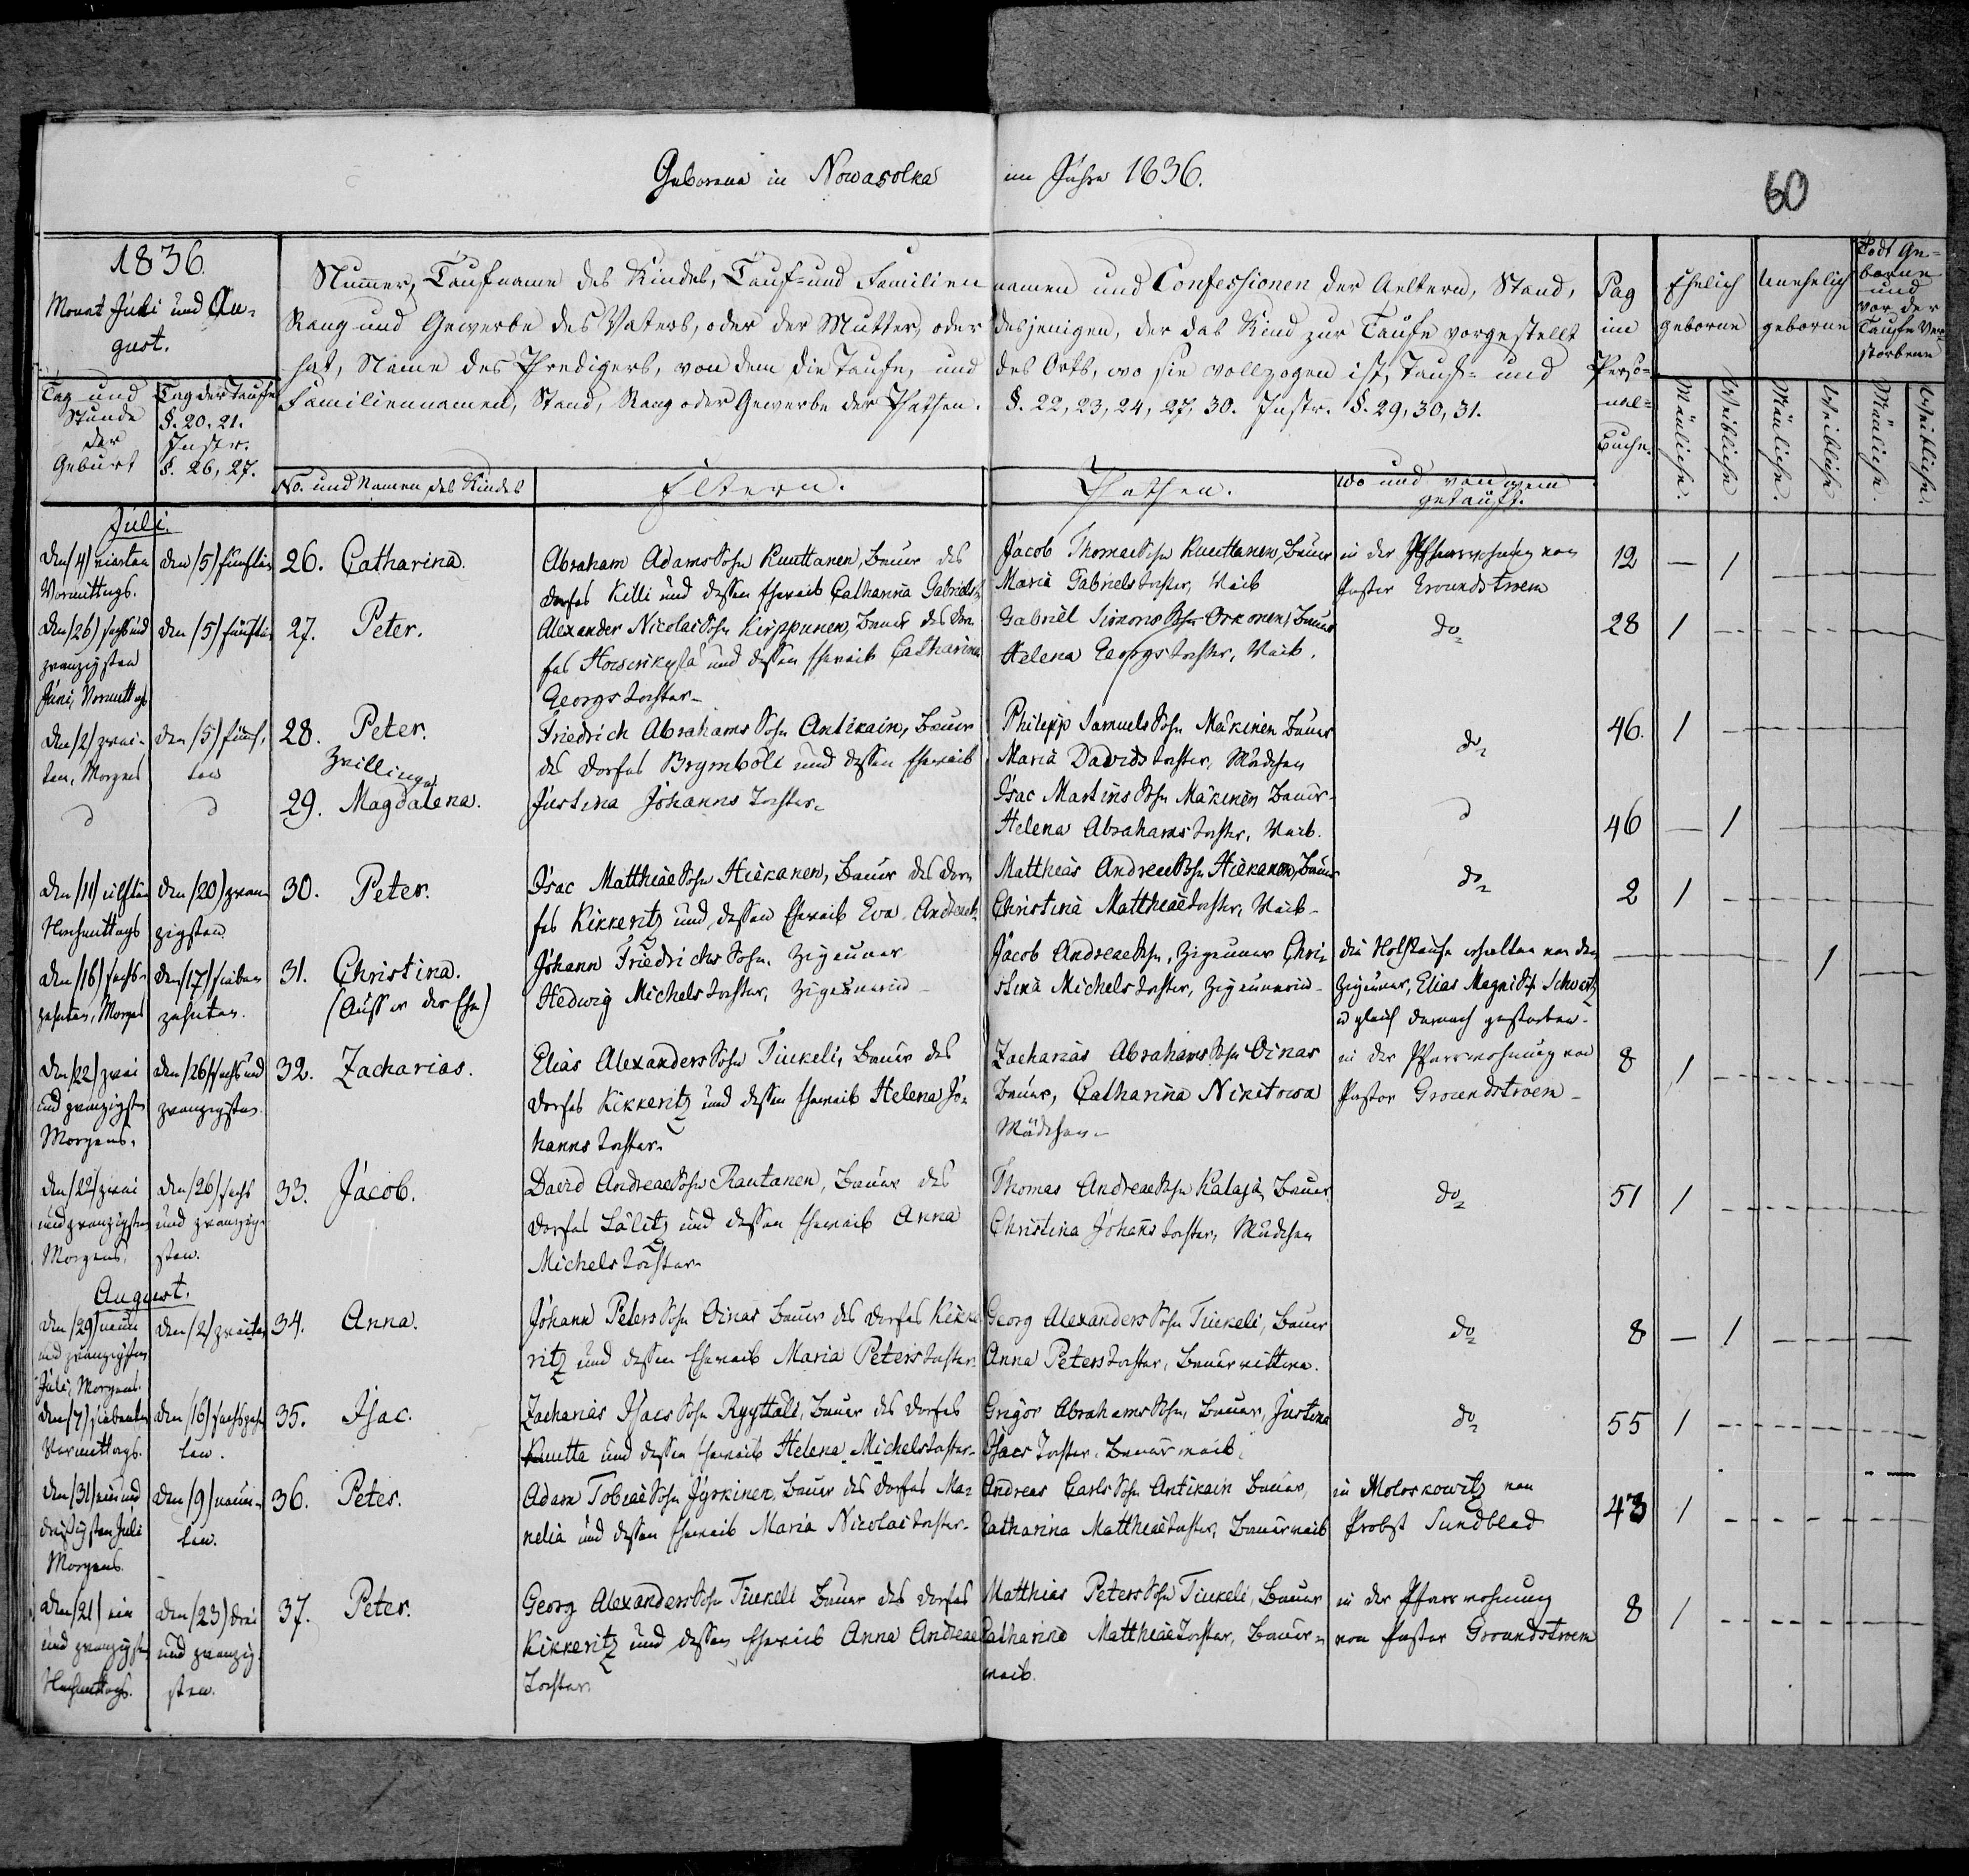 Geborene in Nowasolka im Jahre 1836.
60
1836.
Monat Juli und Au-
gust.
Tag und
Stunde
der
Geburt
Tag der Taufe
§. 20. 21.
Instr.
§. 26, 27.
Nummer, Taufname des Kindes, Tauf- und Familien namen und Confessionen der Aeltern, Stand,
Rang und Gewerbe des Vaters, oder der Mutter, oder desjenigen, der das Kind zur Taufe vorgestellt
hat, Name des Predigers, von dem die Taufe, und des Orts, wo sie vollzogen ist, Tauf- und
Familiennamen, Stand, Rang oder Gewerbe der Pathen. §. 22, 23, 24, 27, 30. Instr. §. 29, 30, 31.
No. und Namen des Kindes
Eltern.
Pathen.
Wo und von wem
getauft.
Pag
im
Perso-
nal-
Buche.
Ehelich
geborne
Unehelich
geborne
Todt Ge-
borne
und
vor der
Taufe Ver-
storbene
Mänliche.
Weibliche
Mänliche.
Weibliche
Mänliche.
Weibliche.
Juli.
den (4) vierten
Vormittags.
den (5) fünften
26. Catharina.
Abraham Adams Sohn Kuuttanen, Bauer des
Dorfes Killi und dessen Eheweib Catharina Gabriels
Jacob Thomae Sohn Kuuttanen, Bauer
Maria Gabriels Tochter, Weib
in der Pfarrwohnung von
Pastor Groundstroem
12 — 1
den (26) sechs und
zwanzigsten
Juni, Vormittags
den (5) fünften
27. Peter.
Alexander Nicolai Sohn Kirppunen, Bauer des Dor-
fes und dessen Eheweib Catharina
Georgs Tochter
Gabriel Simons Sohn Orkonen, Bauer
Helena Georgs Tochter, Weib.
do
28 1
den (2) zwei-
ten, Morgens
den (5) fünf-
ten
28. Peter.
Zwillinge
Friedrich Abrahams Sohn Antikain, Bauer
des Dorfes Brymböle und dessen Eheweib
Justina Johanns Tochter
Philipp Samuels Sohn Mäkinen Bauer
Maria Davids Tochter, Mädchen
do
46. 1
29. Magdalena.
Isac Martins Sohn Mäkinen Bauer
Helena Abrahams Tochter, Weib.
46 — 1
den (11) eilften
Nachmittags
den (20) zwan-
zigsten
30. Peter.
Isac Matthiae Sohn Hiekanen, Bauer des Dor-
fes Kikkeritz und dessen Eheweib Eva Andreae
Matthias Andreae Sohn Hiekanen, Bauer
Christina Matthiae Tochter, Weib
do
2 1
den (16) sechs-
zehnten, Morgens
den (17) sieben
zehnten.
31. Christina.
(Ausser der Ehe)
Johann Friedrichs Sohn, Zigeuner
Hedwig Michels Tochter, Zigeunerin
Jacob Andreae Sohn, Zigeuner Chri-
stina Michels Tochter, Zigeunerin
die Nothtaufe erhalten von dem
Zigeuner, Elias Magni Schwartz
u gleich darnach gestorben.
1
den (22) zwei
und zwanzigsten
Morgens.
den (26) sechs und
zwanzigsten
32. Zacharias.
Elias Alexanders Sohn Tiukeli, Bauer des
Dorfes Kikkeritz und dessen Eheweib Helena Jo-
hanns Tochter
Zacharias Abrahams Sohn Oinas
Bauer, Catharina Nikitowa
Mädchen
in der Pfarrwohnung von
Pastor Groundstroem
8 1
den (22) zwei
und zwanzigsten
Morgens
den (26) sechs
und zwanzig-
sten.
33. Jacob.
David Andreae Sohn Rautanen, Bauer des
Dorfes Lälitz und dessen Eheweib Anna
Michels Tochter
Thomas Andreae Sohn Kalaja, Bauer
Christina Johans Tochter, Mädchen
do
51 1
August.
den (29) neun
und zwanzigsten
Juli, Morgens.
den (2) zweiten
34. Anna.
Johann Peters Sohn Oinas Bauer des Dorfes Kikke
ritz und dessen Eheweib Maria Peters Tochter
Georg Alexanders Sohn Tiukeli, Bauer
Anna Peters Tochter, Bauer wittwe.
do
8 — 1
den (7) siebenten
Vormittags.
den (16) sechszehn
ten.
35. Isac.
Zacharias Isacs Sohn Ryyttäli, Bauer des Dorfes
Kuutta und dessen Eheweib Helena Michels Tochter
Grigor Abrahams Sohn, Bauer, Justina
Isacs Tochter, Bauerweib.
do
55 1
den (31) ein und
dreißigsten Juli
Morgens.
den (9) neun-
ten.
36. Peter.
Adam Tobiae Sohn Jyrkinen, Bauer des Dorfes Ma-
nelia und dessen Eheweib Maria Nicolai Tochter
Andreas Carls Sohn Antikain Bauer,
Catharina Matthiae Tochter, Bauerweib
in Moloskowitz von
Probst Sundblad
43 1
den (21) ein
und zwanzigsten
Nachmittags.
den (23) drei
und zwanzig-
sten.
37. Peter.
Georg Alexanders Sohn Tiukeli Bauer des Dorfes
Kikkeritz und dessen Eheweib Anna Andreae
Tochter
Matthias Peters Sohn Tiukeli, Bauer
Catharina Matthiae Tochter, Bauer-
weib.
in der Pfarrwohnung
von Pastor Groundstroem
8 1